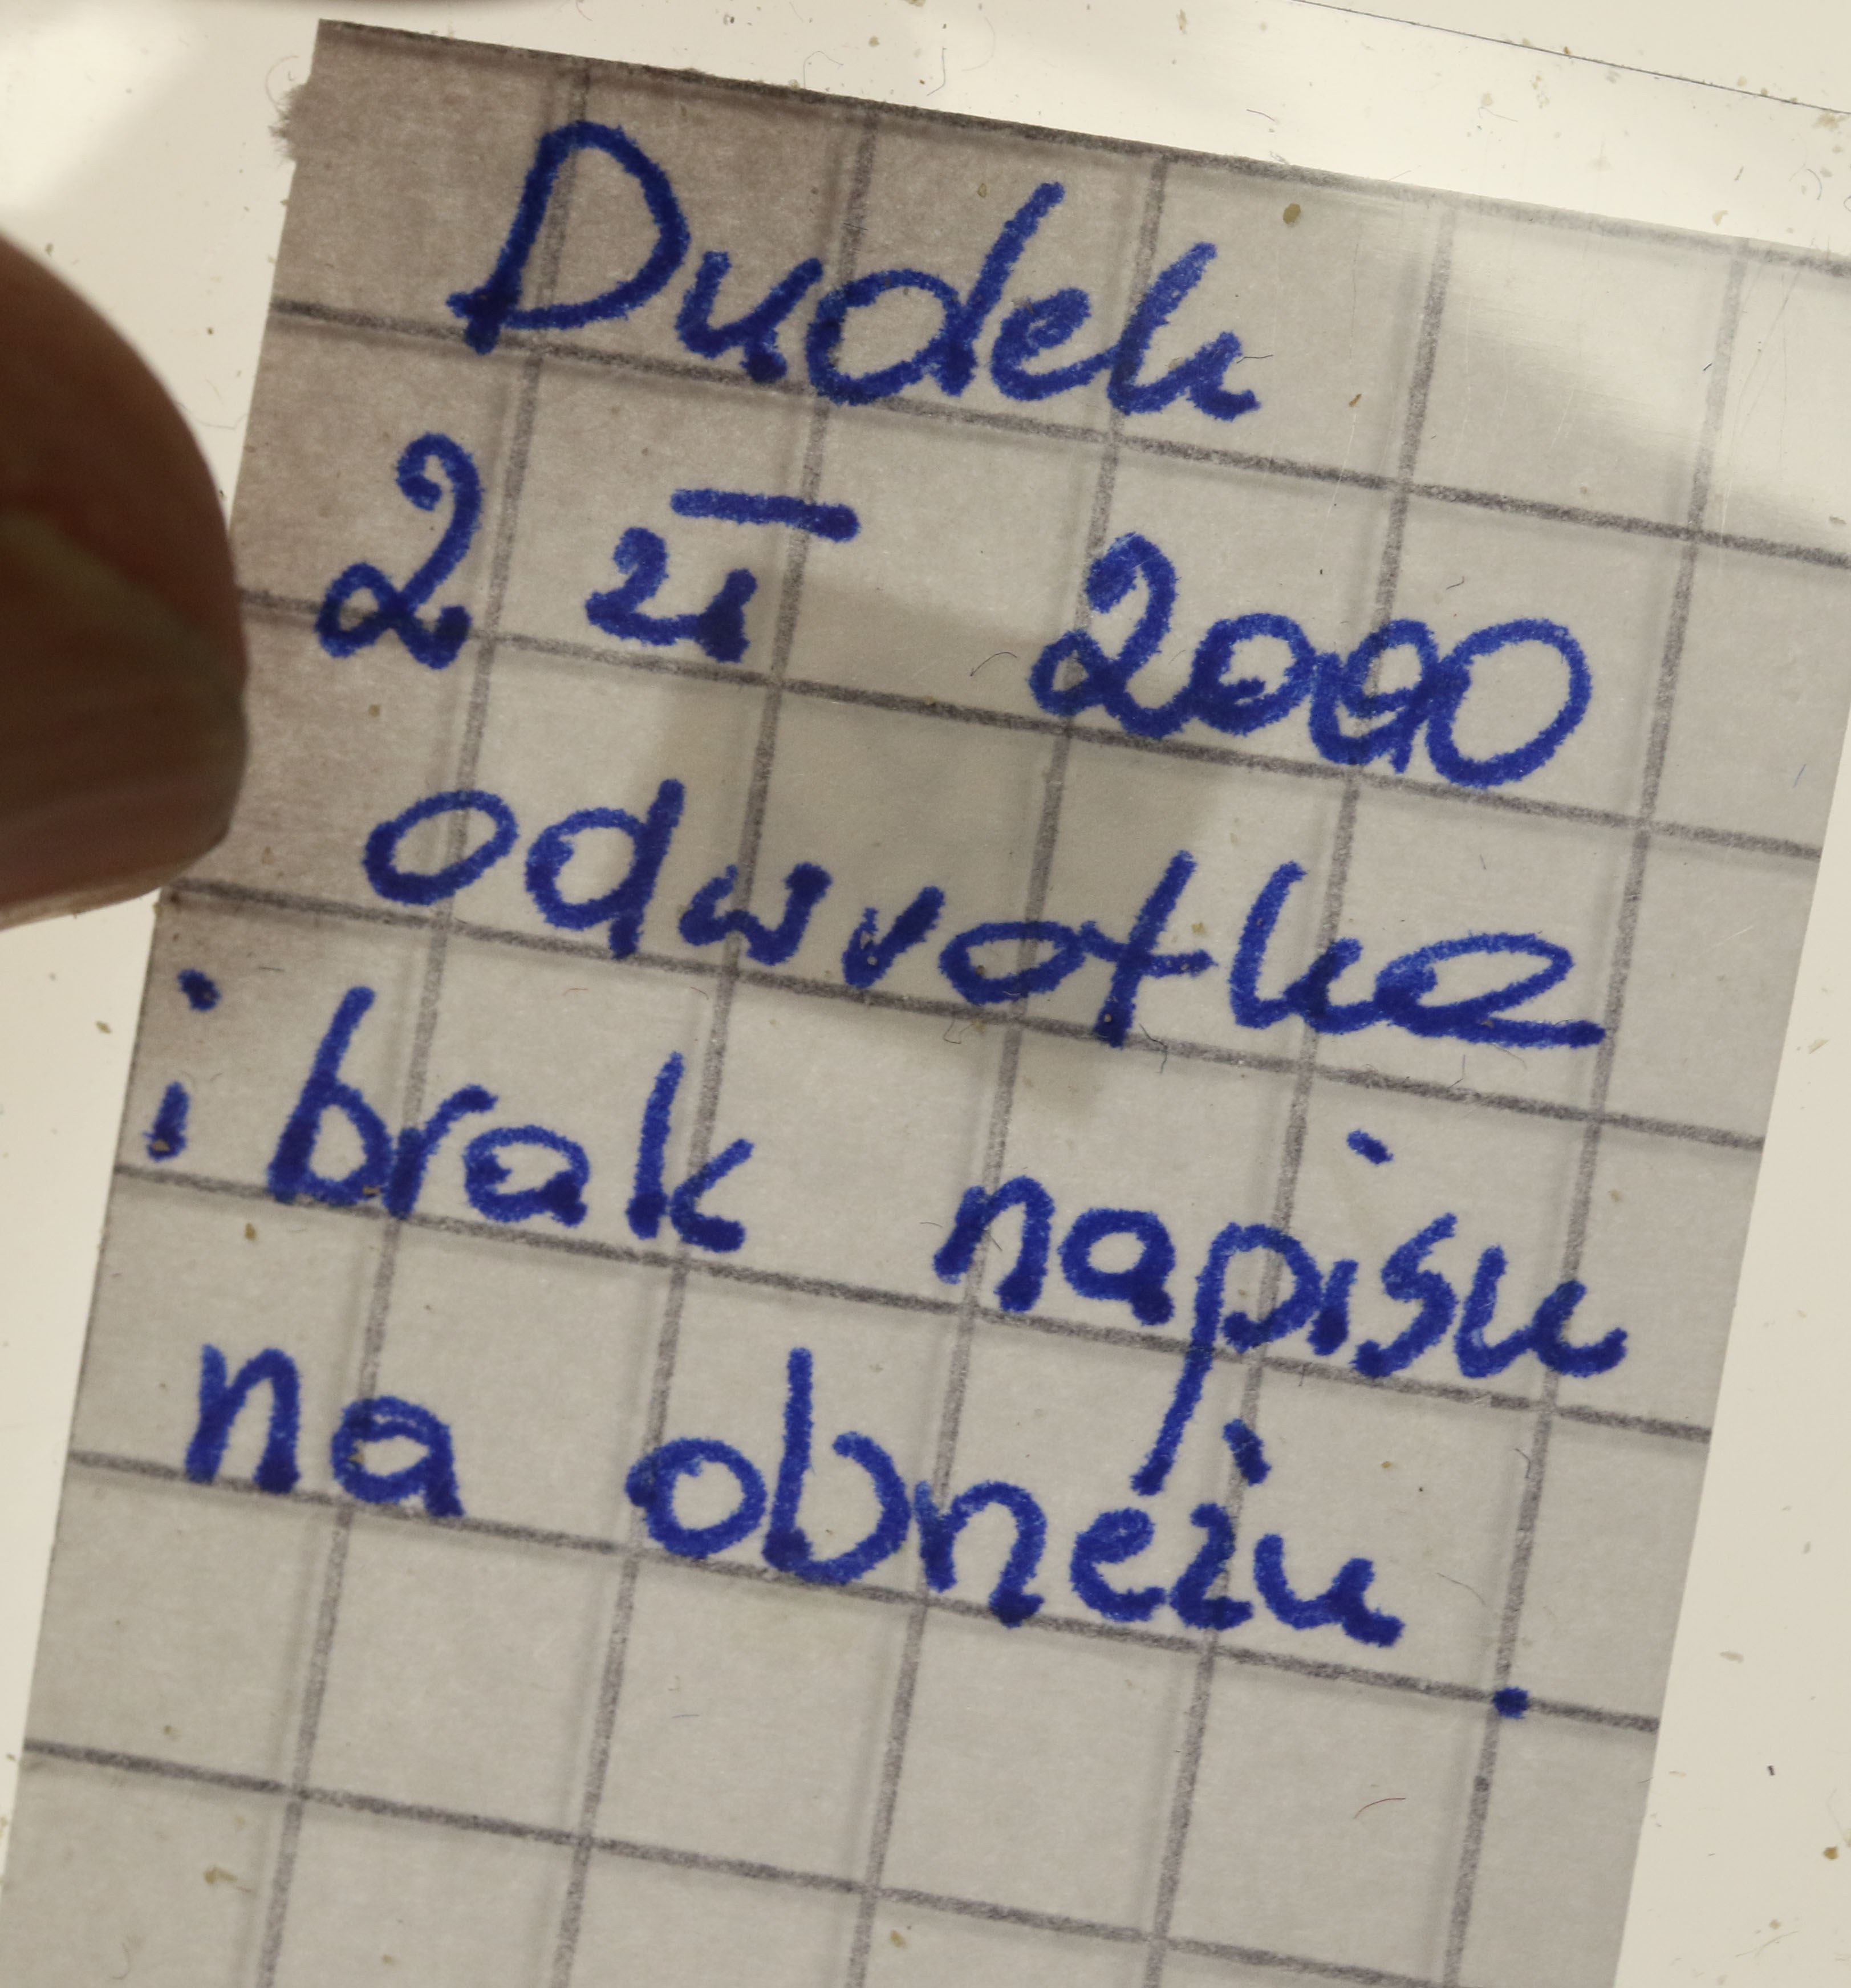 Dudek
2 zł 2000
odwrotka
i brak napisu
na obrzeżu.